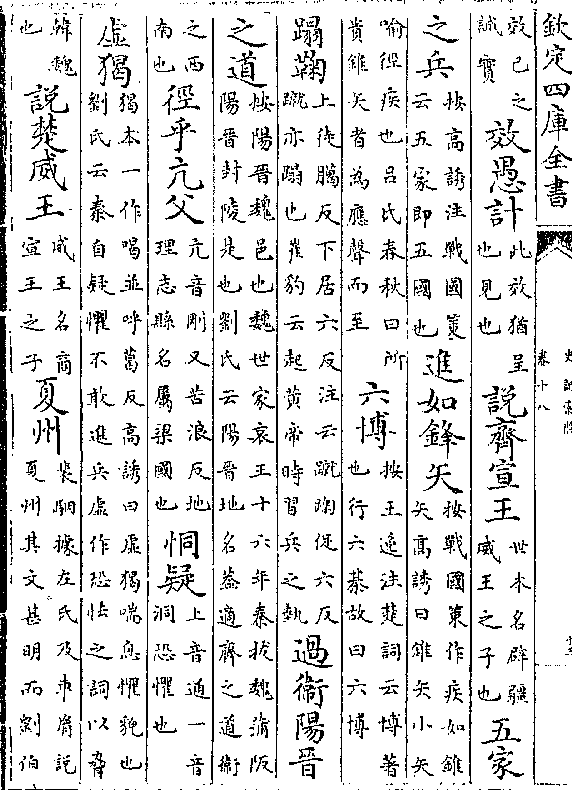 欽定四庫全書
史記索隱
卷十八
效己之誠實效愚計此效猶呈也見也說齊宣王世本名辟疆威王之子也五家
之兵按高誘注戰國策云五家即五國也進如鋒矢按戰國策作疾如錐矢高誘曰錐矢小矢
喻徑疾也吕氏春秋曰所貴錐矢者為應聲而至六博按王逸注楚詞云博著也行六棊故曰六博
蹋鞠上徒臘反下居六反注云蹴踘促六反蹴亦蹋也崔豹云起黄帝時習兵之埶過衞陽晉
之道按陽晉魏邑也魏世家哀王十六年秦拔魏蒲阪陽晉封陵是也劉氏云陽晉地名葢適齊之道衞
之西南也徑乎亢父亢音剛又苦浪反地理志縣名屬梁國也恫疑上音通一音洞恐懼也
虛猲猲本一作喝並呼葛反高誘曰虛猲喘息懼貌也劉氏云秦自疑懼不敢進兵虛作恐怯之詞以脅
韓魏也說楚威王威王名商宣王之子夏州裴駰據左氏及車胤說夏州其文甚明而劉伯